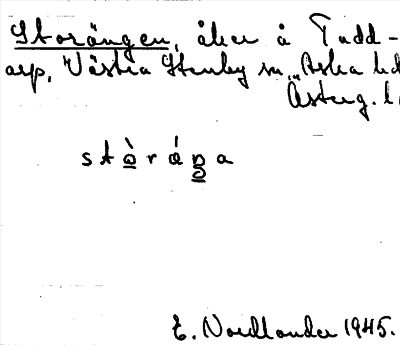 Storängen, åker å Tadd-
arp, Västra Stenby sn, Aska hd
Österg. l.
stòráŋa
E. Nordlander 1945.